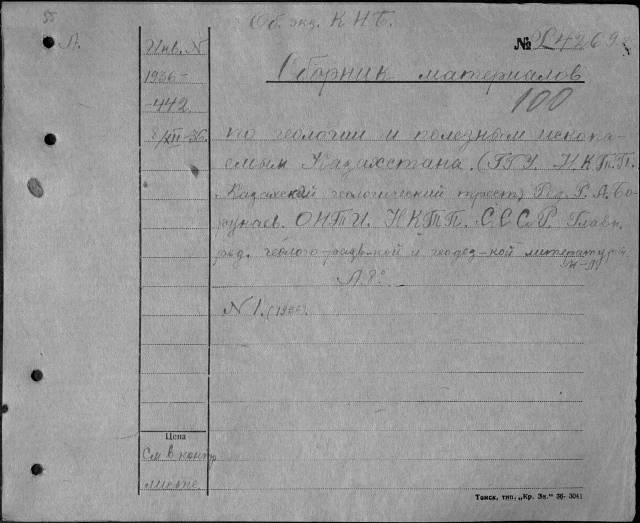 55
Об. экз. К Н Б.
Л.
Инв. N
№ 24269
1936-
Сборник материалов
-442
100
8/XII-36.
по геологии и полезным ископа-
емым Казахстана. (ГГУ. НКТП.
Казахский геологический трест) Ред. Р. А. Бо-
рукаев. ОНТИ. НКТП. СССР. Главн.
ред. геолого-развед-кой и геодез-кой литературы
Л. 8°
N 1. (1936).
Цена
См в контр
листке.
Томск, тип. „Кр. Зн." 36- 3041